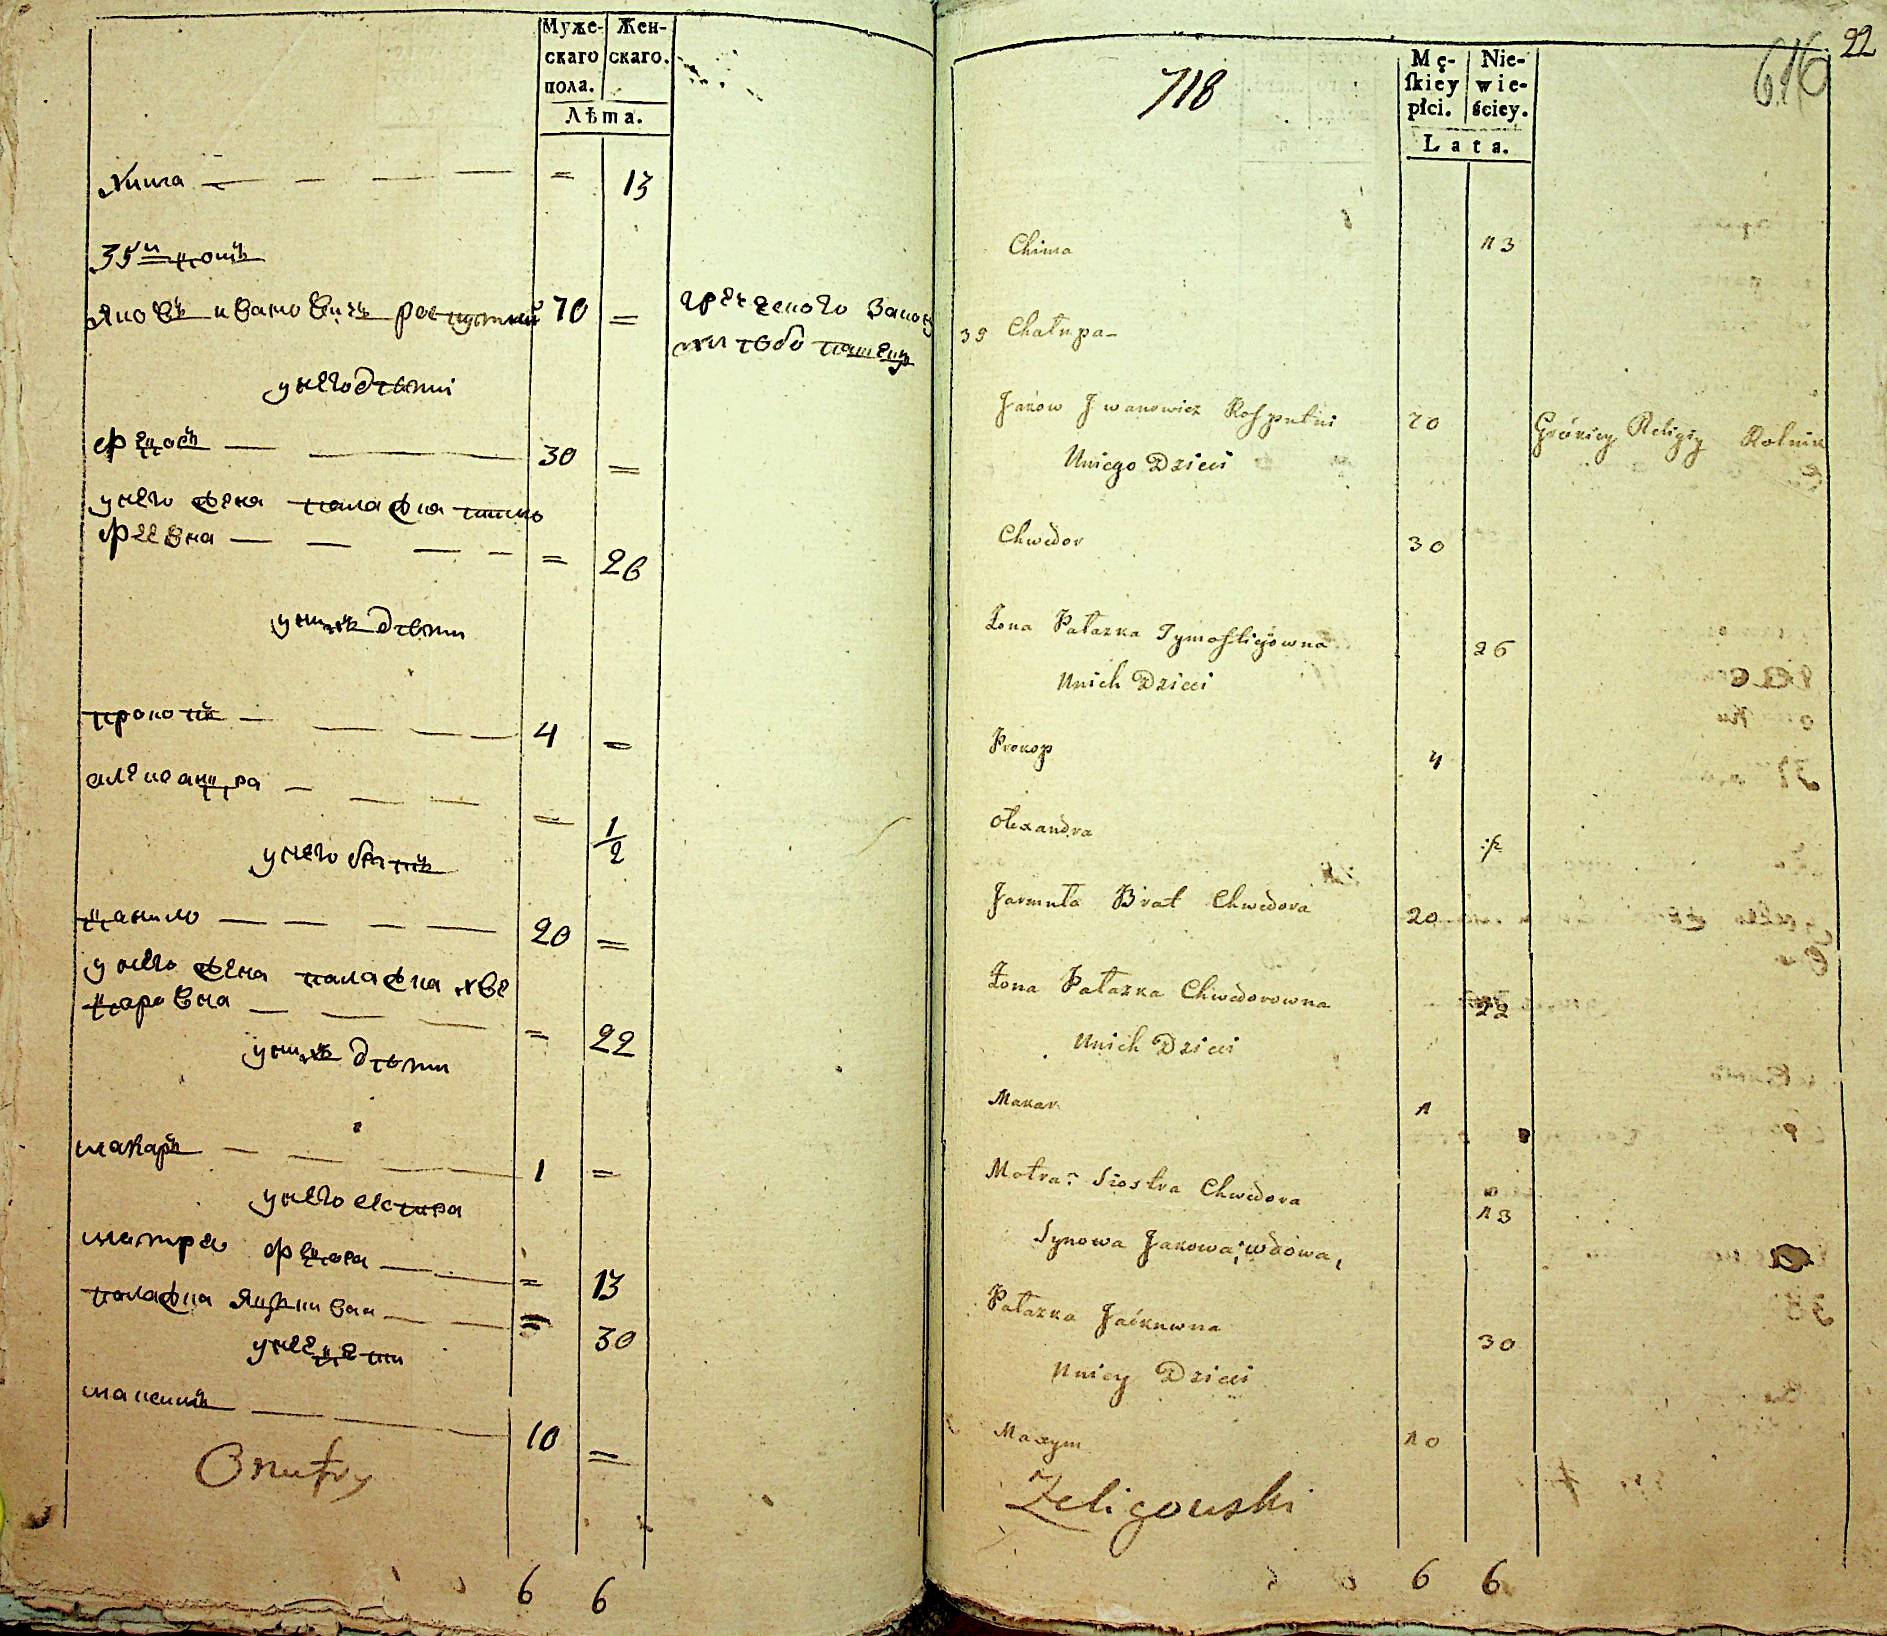 Муже- Жен-
скаго скаго.
пола.
Лѣта.
Хима = 13
35й домъ
Яковъ ивановичъ роспутний 70 = греческого закону
хлебо пашецъ
унего дѣти
Федосъ 30 =
унего жена палажка тимо
феевна = 26
унихъ дѣти
прокопъ 4 =
александра = 1/2
унего братъ
данило 20 =
унего жена палажка хве
доровна = 22
унихъ дѣти
макаръ 1 =
унего сестра
матра Федора = 13
палажка = 30
унее дети
максимъ 10 =
6 6
22
616
718
Mę- Nie-
ſkiey wie-
płci. ściey.
Lata.
Chima 13
35 Chałupa
Jakow Jwanowicz Rosputni 70 Gréckiey Religiy Rolnik
Uniego Dzieci
Chwedor 30
Żona Pałazka Tymofiejowna 26
Unich Dzieci
Prokop 4
Olexandra ½
Jarmuła Brat Chwedora 20
Żona Pałazka Chwedorowna 22
Unich Dzieci
Makar 1
Motra: Siostra Chwedora 13
Synowa Jakowa; wdowa,
Pałazka Jackuwna 30
Uniey Dzieci
Maxym 10
Zeligowski
6 6